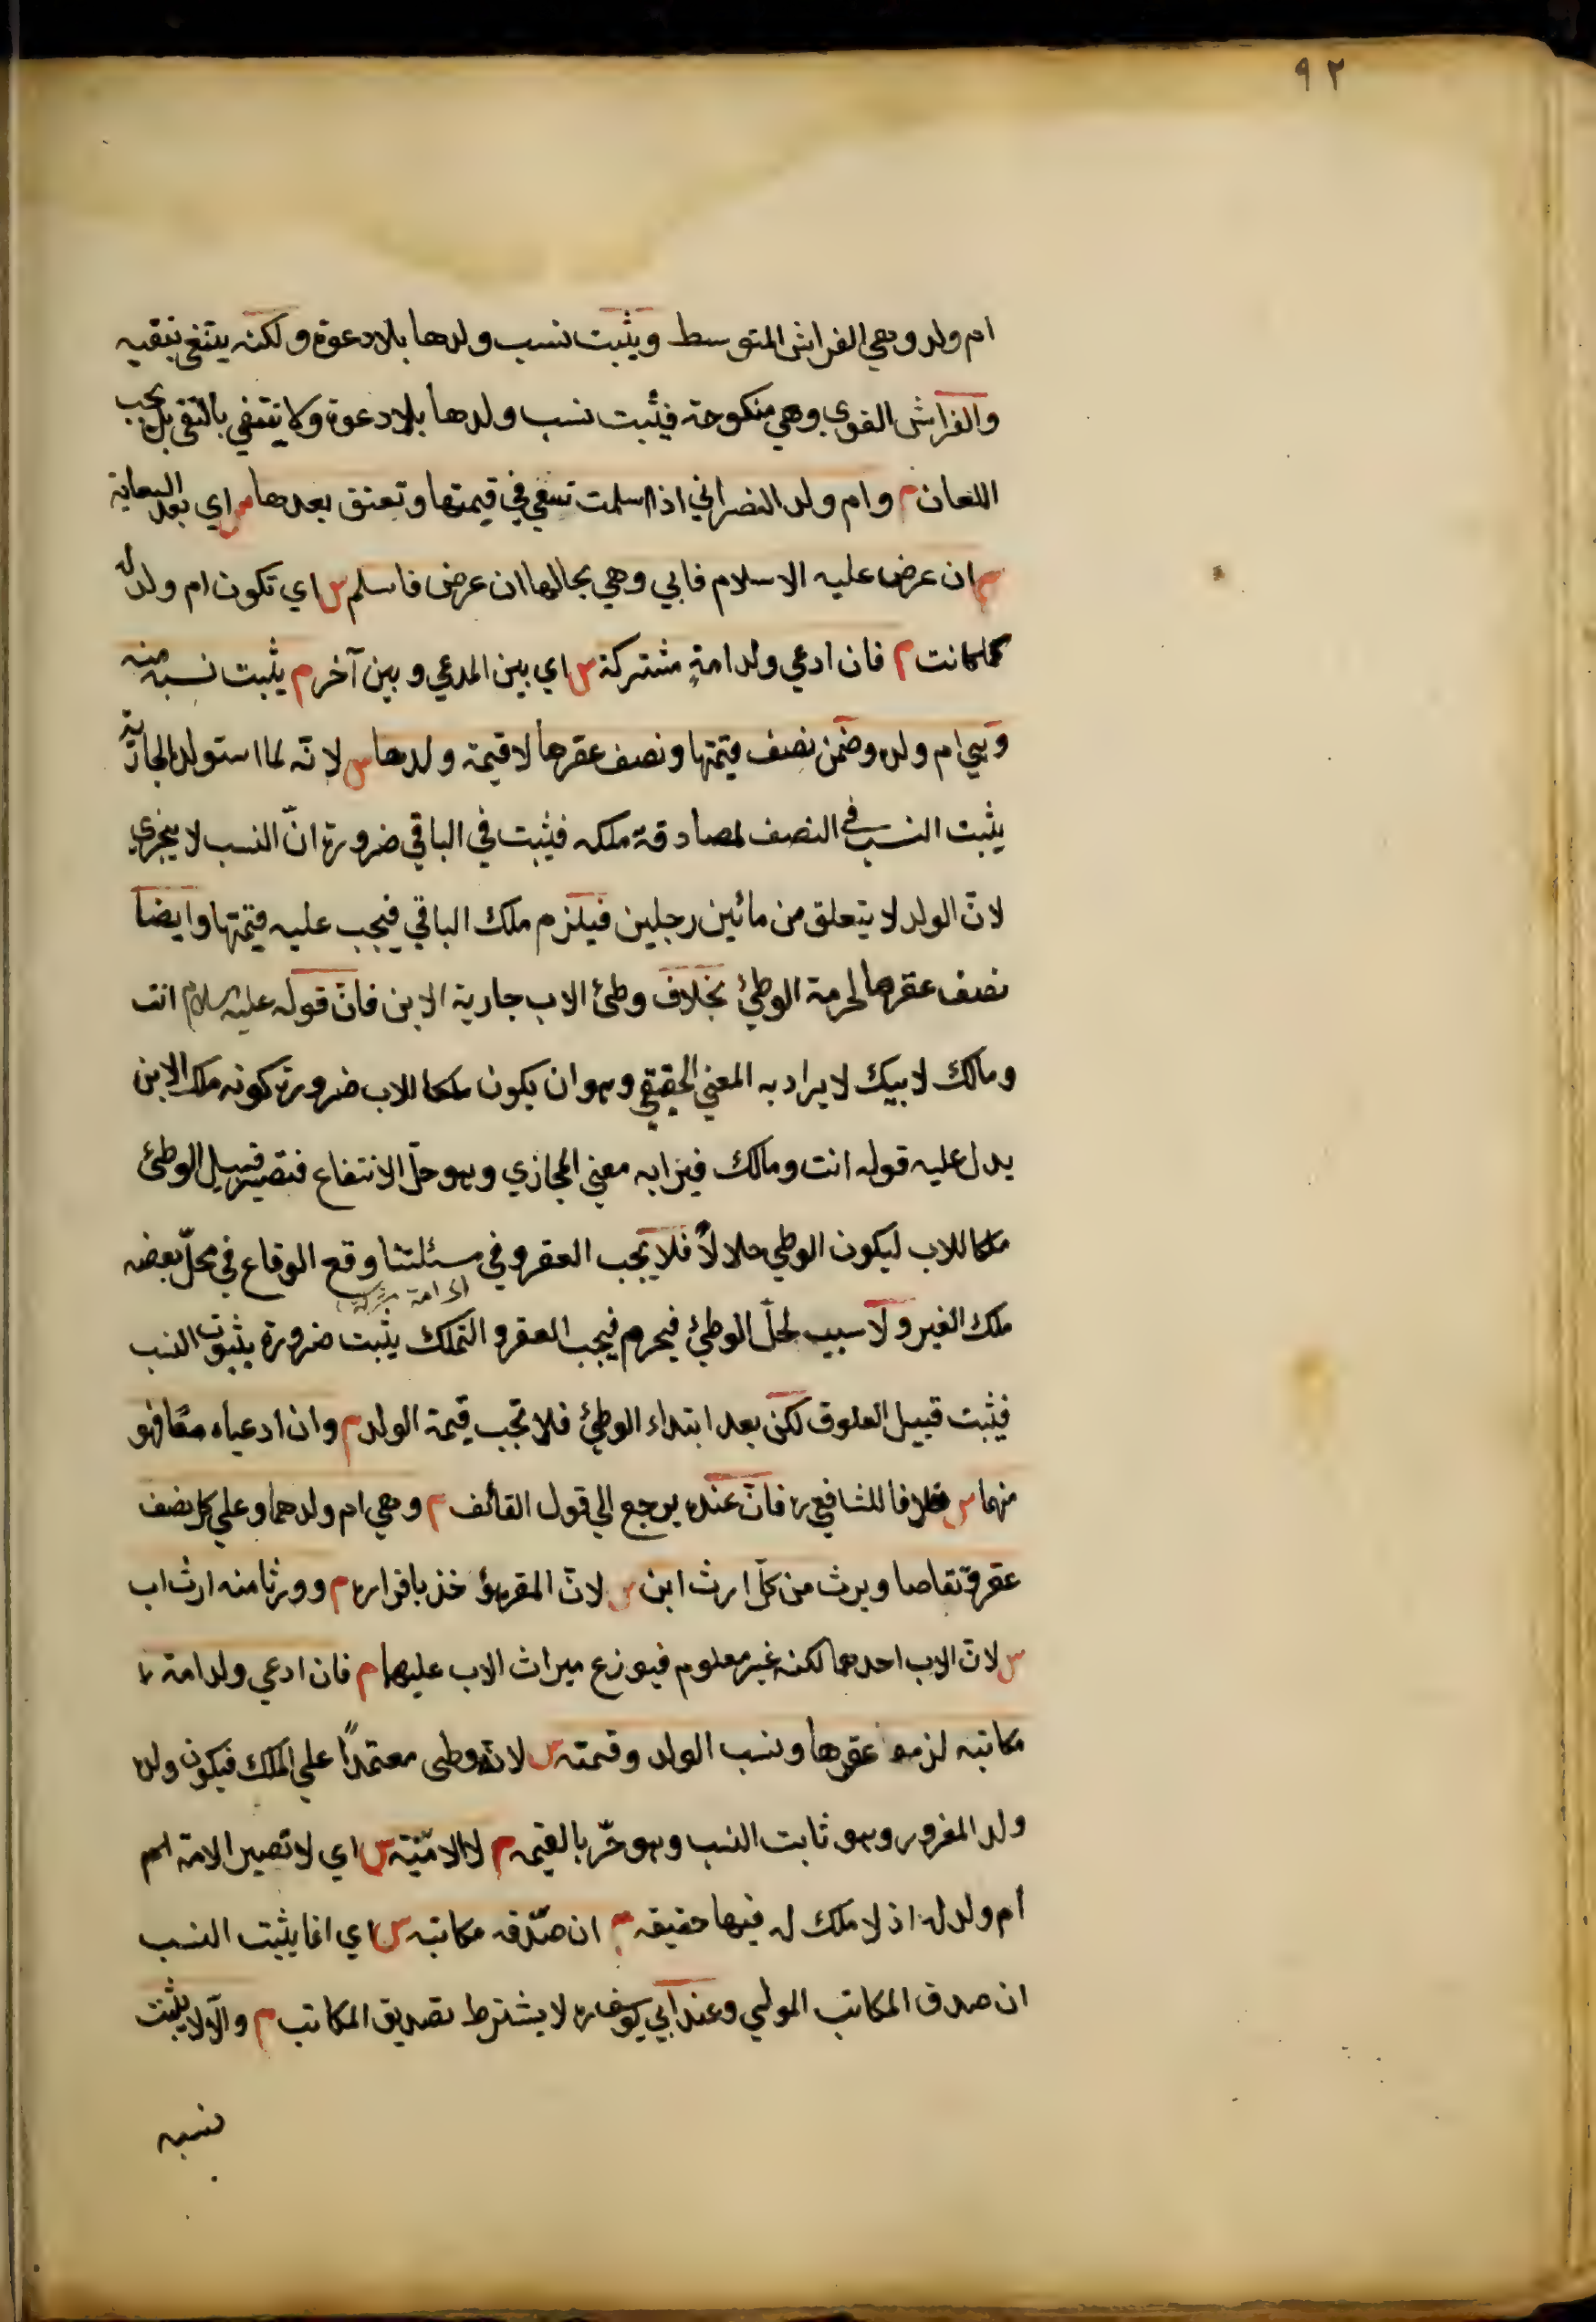 ٩٢
ام ولد وهي الفراش المتوسط ويثبت نسب ولدها بلا دعوة ولكنه ينتفي بنفيه
والفراش القوي وهي منكوحة فيثبت نسب ولدها بلا دعوة ولا ينتفي بالنفي بل يجب
اللعان م وام ولد النصراني اذا اسلمت تسعي في قيمتها وتعتق بعدها س اي بعد السعاية
م ان عرض عليه الاسلام فابي وهي بحالها ان عرض فاسلم س اي تكون ام ولد له
كما كانت م فان ادعي ولد امةٍ مشتركة س اي بين المدعي وبين آخر م يثبت نسبه منه
وهي ام ولده وضمن نصف قيمتها ونصف عقرها لا قيمة ولدها س لانّه لما استولد الجارية
يثبت النسب في النصف لمصادقة ملكه فيثبت في الباقي ضرورة انّ النسب لا يتجزي
لانّ الولد لا يتعلق من مائين رجلين فيلزم ملك الباقي فيجب عليه قيمتها وايضا
نصف عقرها لحرمة الوطئ بخلاف وطئ الاب جارية الابن فانّ قوله عليه السلام انت
ومالك لابيك لا يراد به المعني الحقيقي وهو ان يكون ملكا للاب ضرورة كونه ملك الابن
يدل عليه قوله انت ومالك فيرا به معني المجازي وهو حلّ الانتفاع فتصير قبيل الوطئ
ملكا للاب ليكون الوطي حلالاً فلا يجب العقر وفي مسئلتنا وقع الوقاع في محلّ بعضه
اي امة مشتركة
ملك الغير ولا سبب لحلّ الوطئ فيحرم فيجب العقر والتملك يثبت ضرورة بثبوت النسب
فيثبت قبيل العلوق لكن بعد ابتداء الوطئ فلا تجب قيمة الولد م وان ادعياه معًا فهو
منهما س خلافا للشافعي ره فانّ عنده يرجع الي قول القائف م وهي ام ولدهما وعلي كل نصف
عقره وتقاصا ويرث من كلّ ارث ابن س لانّ المقر يؤخذ باقراره م وورثا منه ارث اب
س لانّ الاب احدهما لكنه غير معلوم فيوزع ميراث الاب عليهما م فان ادعي ولد امة
مكاتبه لزمه عقرها ونسب الولد وقيمته س لانه وطى معتمداً علي الملك فيكون ولده
ولد المغرور وهو ثابت النسب وهو حرّ بالقيمه م لا الاميّة س اي لا تصير الامة ام
ام ولد له اذ لا ملك له فيها حقيقه م ان صدّقه مكاتبه س اي انما يثبت النسب
ان صدق المكاتب المولي وعند ابي يوسف ره لا يشترط تصديق المكاتب م والّا لا يثبت
نسبه